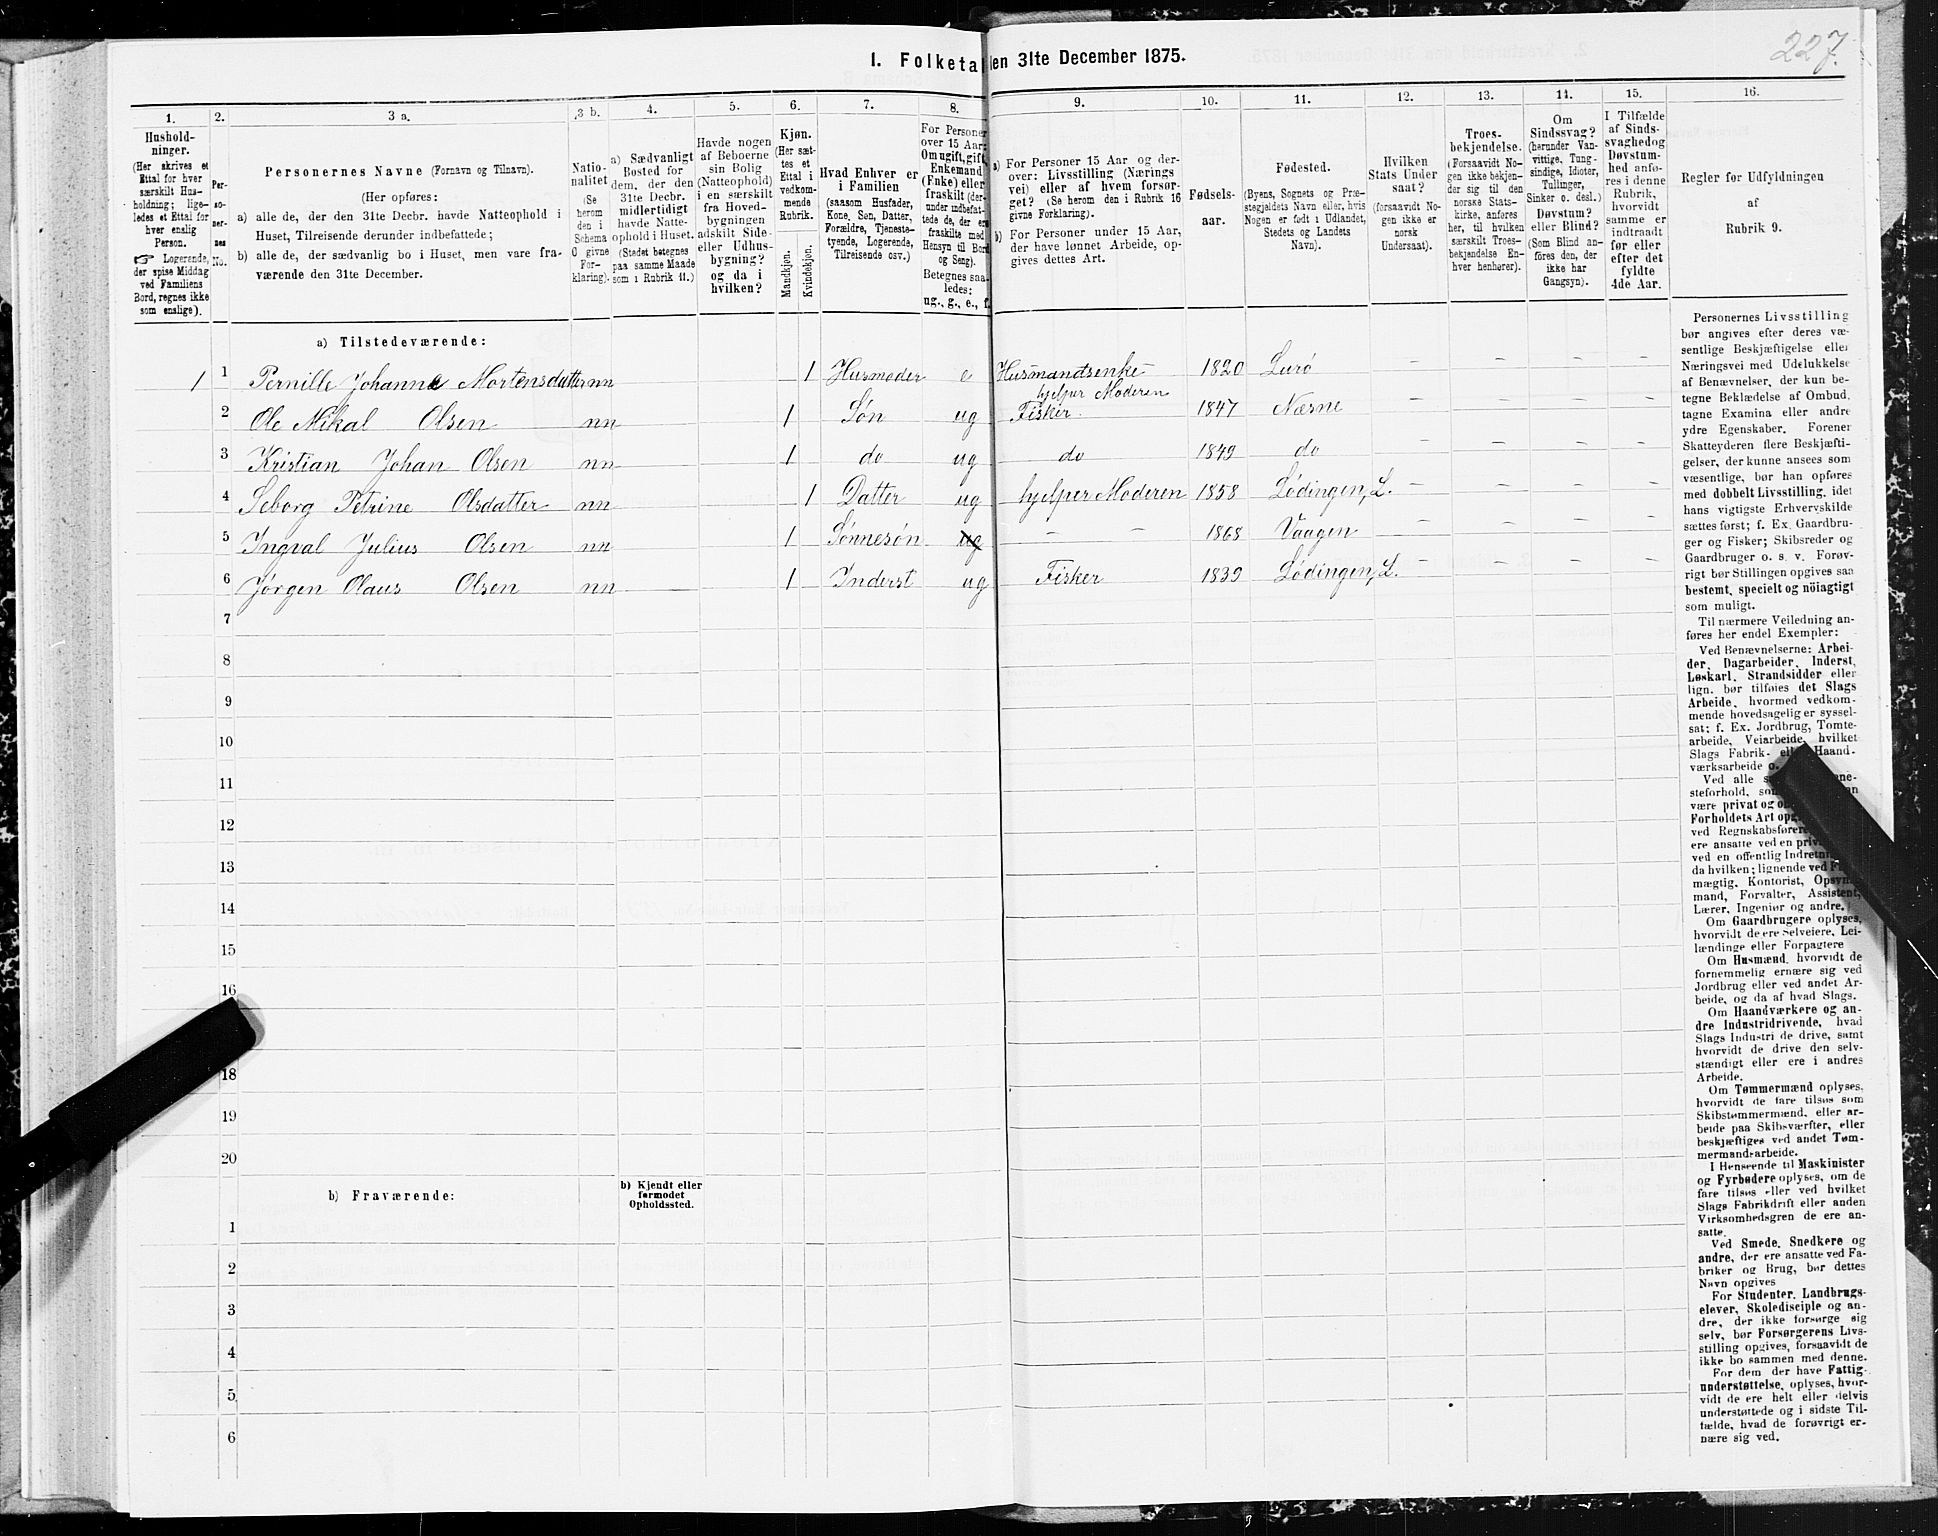 227.
1. Folketal den 31te December 1875.
1. 2. 3 a. 3 b. 4. 5. 6. 7. 8. 9. 10. 11. 12. 13. 14. 15. 16.
Hushold-
ninger.
(Her skrives et
Ettal for hver
særskilt Hus-
holdning; lige-
ledes et Ettal for
hver enslig
Person.
☞ Logerende,
der spise Middag
ved Familiens
Bord, regnes ikke
som enslige).
Per-
so-
ner-
nes
No.
Personernes Navne (Fornavn og Tilnavn).
(Her opføres:
a) alle de, der den 31te Decbr. havde Natteophold i
Huset, Tilreisende derunder indbefattede;
b) alle de, der sædvanlig bo i Huset, men vare fra-
værende den 31te December.
Natio-
nalitet
(Se
herom
den i
Schema
6 givne
For-
klaring).
a) Sædvanligt
Bosted for
dem, der den
31te Decbr.
midlertidigt
havde Natte-
ophold i Huset.
(Stedet betegnes
paa samme Maade
som i Rubrik 11.)
Havde nogen
af Beboerne
sin Bolig
(Natteophold)
i en særskilt
fra Hoved-
bygningen
adskilt Side-
eller Udhus-
bygning?
og da i
hvilken?
Kjøn.
(Her sæt-
tes et
Ettal i
vedkom-
mende
Rubrik.
Mandkjøn.
Kvindekjøn.
Hvad Enhver er
i Familien
(saasom Husfader,
Kone, Søn, Datter,
Forældre, Tjeneste-
tyende, Logerende,
Tilreisende osv.)
For Personer
over 15 Aar:
Om ugift, gift,
Enkemand
(Enke) eller
fraskilt (der-
under indbefat-
tede de, der ere
fraskilte med
Hensyn til Bord
og Seng).
Betegnes saa-
ledes:
ug., g., e., f.
a) For Personer 15 Aar og der-
over: Livsstilling (Nærings
vei) eller af hvem forsør-
get? (Se herom den i Rubrik 16
givne Forklaring).
b) For Personer under 15 Aar,
der have lønnet Arbeide, op-
gives dettes Art.
Fødsels-
aar.
Fødested.
(Byens, Sognets og Præ-
stegjeldets Navn eller, hvis
Nogen er født i Udlandet,
Stedets og Landets
Navn).
Hvilken
Stats Under
saat?
(forsaavidt No-
gen ikke er
norsk
Undersaat).
Troes-
bekjendelse.
(Forsaavidt No-
gen ikke bekjen-
der sig til den
norske Stats-
kirke, anføres
her, til hvilken
særskilt Troes-
bekjendelse En-
hver henhører).
Om
Sindssvag?
(herunder Van-
vittige, Tung-
sindige, Idioter,
Tullinger,
Sinker o. desl.)
Døvstum?
eller Blind?
(Som Blind an-
føres den, der
ikke har
Gangsyn).
I Tilfælde
af Sinds-
svaghed og
Døvstum-
hed anfø-
res i denne
Rubrik,
hvorvidt
samme er
indtraadt
før eller
efter det
fyldte
4de Aar.
Regler for Udfyldningen
af
Rubrik 9.
a) Tilstedeværende:
1 1 Pernille Johanne Mortensdatter nn 1 Husmoder e Husmandsenke 1820 Lurö - - - -
hjelper Moderen
2 Ole Mikal Olsen nn 1 Søn ug Fisker. 1847 Næsne - - - -
3 Kristian Johan Olsen nn 1 do ug do 1849 do - - - -
4 Seborg Petrine Olsdatter nn 1 Datter ug hjelper Moderen 1858 Lödingen, L. - - - -
5 Ingval Julius Olsen nn 1 Sønnesøn ug - - 1868 Vaagen - - - -
6 Jørgen Olaus Olsen nn 1 Inderst ug Fisker 1839 Lödingen, L. - - - -
7
8
9
10
11
12
13
14
15
16
18
19
20
b) Fraværende:
b) Kjendt eller
formodet
Opholdssted.
1
2
3
4
5
6
Personernes Livsstilling
bør angives efter deres væ-
sentlige Beskjæftigelse eller
Næringsvei med Udelukkelse
af Benævnelser, der kun be-
tegne Beklædelse af Ombud,
tagne Examina eller andre
ydre Egenskaber. Forener
Skatteyderen flere Beskjæfti-
gelser, der kunne ansees som
væsentlige, bør han opføres
med dobbelt Livsstilling, idet
hans vigtigste Erhvervskilde
sættes først; f. Ex. Gaardbru-
ger og Fisker; Skibsreder og
Gaardbruger o. s. v. Forøv-
rigt bør Stillingen opgives saa
bestemt, specielt og nöiagtigt
som muligt.
Til nærmere Veiledning an-
føres her endel Exempler:
Ved Benævnelserne: Arbei-
der, Dagarbeider, Inderst,
Løskarl, Strandsidder eller
lign. bør tilføies det Slags
Arbeide, hvormed vedkom-
mende hovedsagelig er syssel-
sat; f. Ex. Jordbrug, Tomte-
arbeide, Veiarbeide, hvilket
Slags Fabrik- eller Haand-
værksarbeide o.
Ved alle
steforhold,
være privat og
Forholdets Art
ved Regnskabsførere
ere ansatte ved en
ved en offentlig
da hvilken; lignende ved
mægtig, Kontorist,
mand, Forvalter, Assistent,
Lærer, Ingeniør og andre.
Om Gaardbrugere oplyses,
hvorvidt de ere Selveiere, Lei-
lændinge eller Forpagtere
Om Husmænd, hvorvidt de
fornemmelig ernære sig ved
Jordbrug eller ved andet Ar-
beide, og da af hvad Slags.
Om Haandværkere og an-
dre Industridrivende, hvad
Slags Industri de drive, samt
hvorvidt de drive den selv-
stændigt eller ere i andres
Arbeide.
Om Tømmermænd oplyses,
hvorvidt de fare tilsøs som
Skibstømmermænd, eller ar-
beide paa Skibsværfter, eller
beskjæftiges ved andet Tøm-
mermandsarbeide.
I Henseende til Maskinister
og Fyrbødere oplyses, om de
fare tilsøs eller ved hvilket
Slags Fabrikdrift eller anden
Virksomhedsgren de ere an-
satte.
Ved Smede, Snedkere og
andre, der ere ansatte ved Fa-
briker og Brug, bør dettes
Navn opgives
For Studenter, Landbrugs-
elever, Skoledisciple og an-
dre, der ikke forsørge sig
selv, bør Forsørgerens Livs-
stilling opgives, forsaavidt de
ikke bo sammen med denne.
For dem der have Fattig-
understøttelse, oplyses, hvor-
vidt de ere helt eller delvis
understøttede og i sidste Til-
fælde, hvad de forøvrigt er-
nære sig ved.